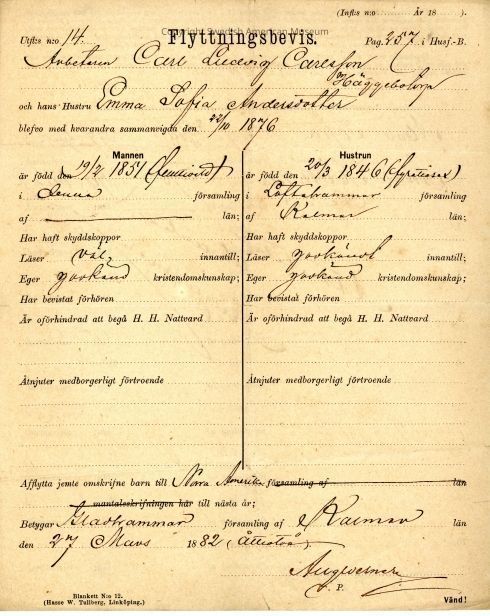 (Inflis n:o År 18 ).
Copyright Swedish American Museum
Utflis n:o 14. Flyttningsbevis. Pag. 257 i Husf.-B.
Arbetaren Carl Ludvig Carlsson
Häggebotorp
och hans Hustru Emma Sofia Andersdotter
blefvo med hvarandra sammanvigda den 22/10 1876.
Mannen
är född den 19/2 1851 (femtioett)
i denna församling
af län;
Har haft skyddskoppor
Läser väl innantill;
Eger godkänd kristendomskunskap;
Har bevistat förhören
Är oförhindrad att begå H. H. Nattvard
Åtnjuter medborgerligt förtroende
Hustrun
är född den 20/3 1846 (fyratiosex)
i Loftahammar församling
af Kalmar län;
Har haft skyddskoppor
Läser godkändt innantill;
Eger godkänd kristendomskunskap;
Har bevistat förhören
Är oförhindrad att begå H. H. Nattvard
Åtnjuter medborgerligt förtroende
Afflytta jemte omskrifne barn till Norra Amerika församling af län
mantalsskrifningen här till nästa år;
Betygar Gladhammar församling af Kalmar län
den 27 Mars 1882 (Åttiotvå)
P.
Blankett N:o 12.
(Hasse W. Tullberg, Linköping.)
Vänd!